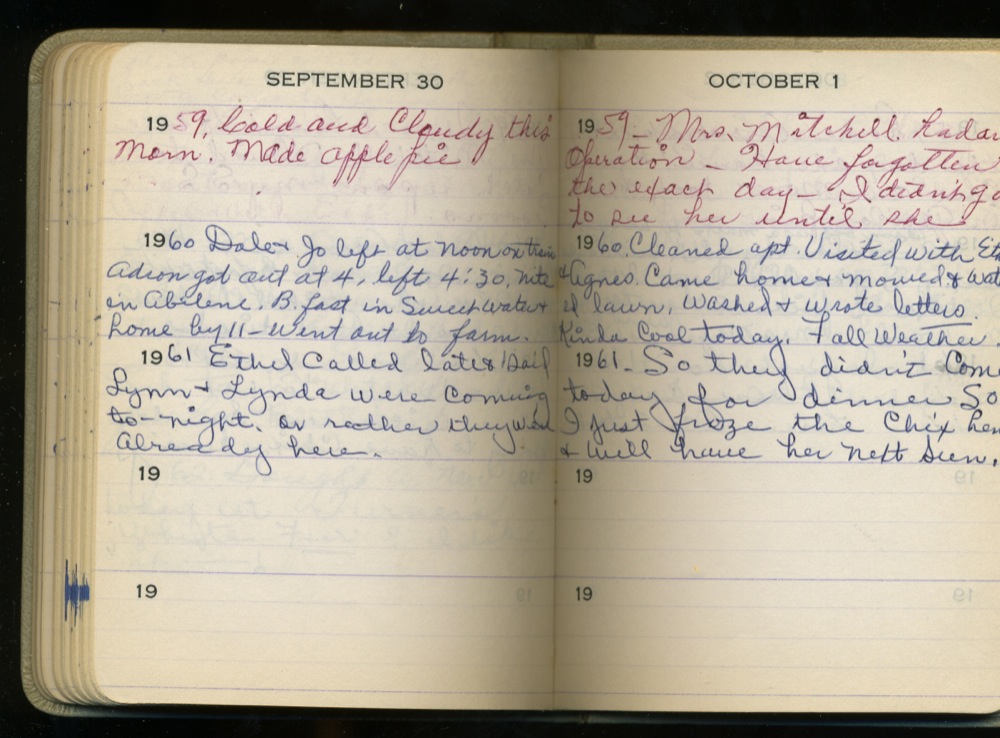 SEPTEMBER 30
1959, Cold and Cloudy this
morn. Made apple pie
1960 Dale & Jo left at noon on train
got out at 4, left 4:30, nite
in Abilene. B. fast in Sweetwater &
home by 11 - went out to farm.
1961 Ethel Called late &
Lynn & Lynda were Coming
to-night, or rather they were
already here.
19
19
OCTOBER 1
1959 - Mrs. Mitchell had an
Operation - Have forgotten
the exact day - I didn't go
to see her until she
1960. Cleaned apt. Visited with
& Agnes. Came home & mowed & wat
ed lawn, Washed & wrote letters.
Kinda Cool today. Fall Weather.
1961 - So they didn't Come
today for dinner So
I just froze the Chix hen
& will have her next Sun.
19
19